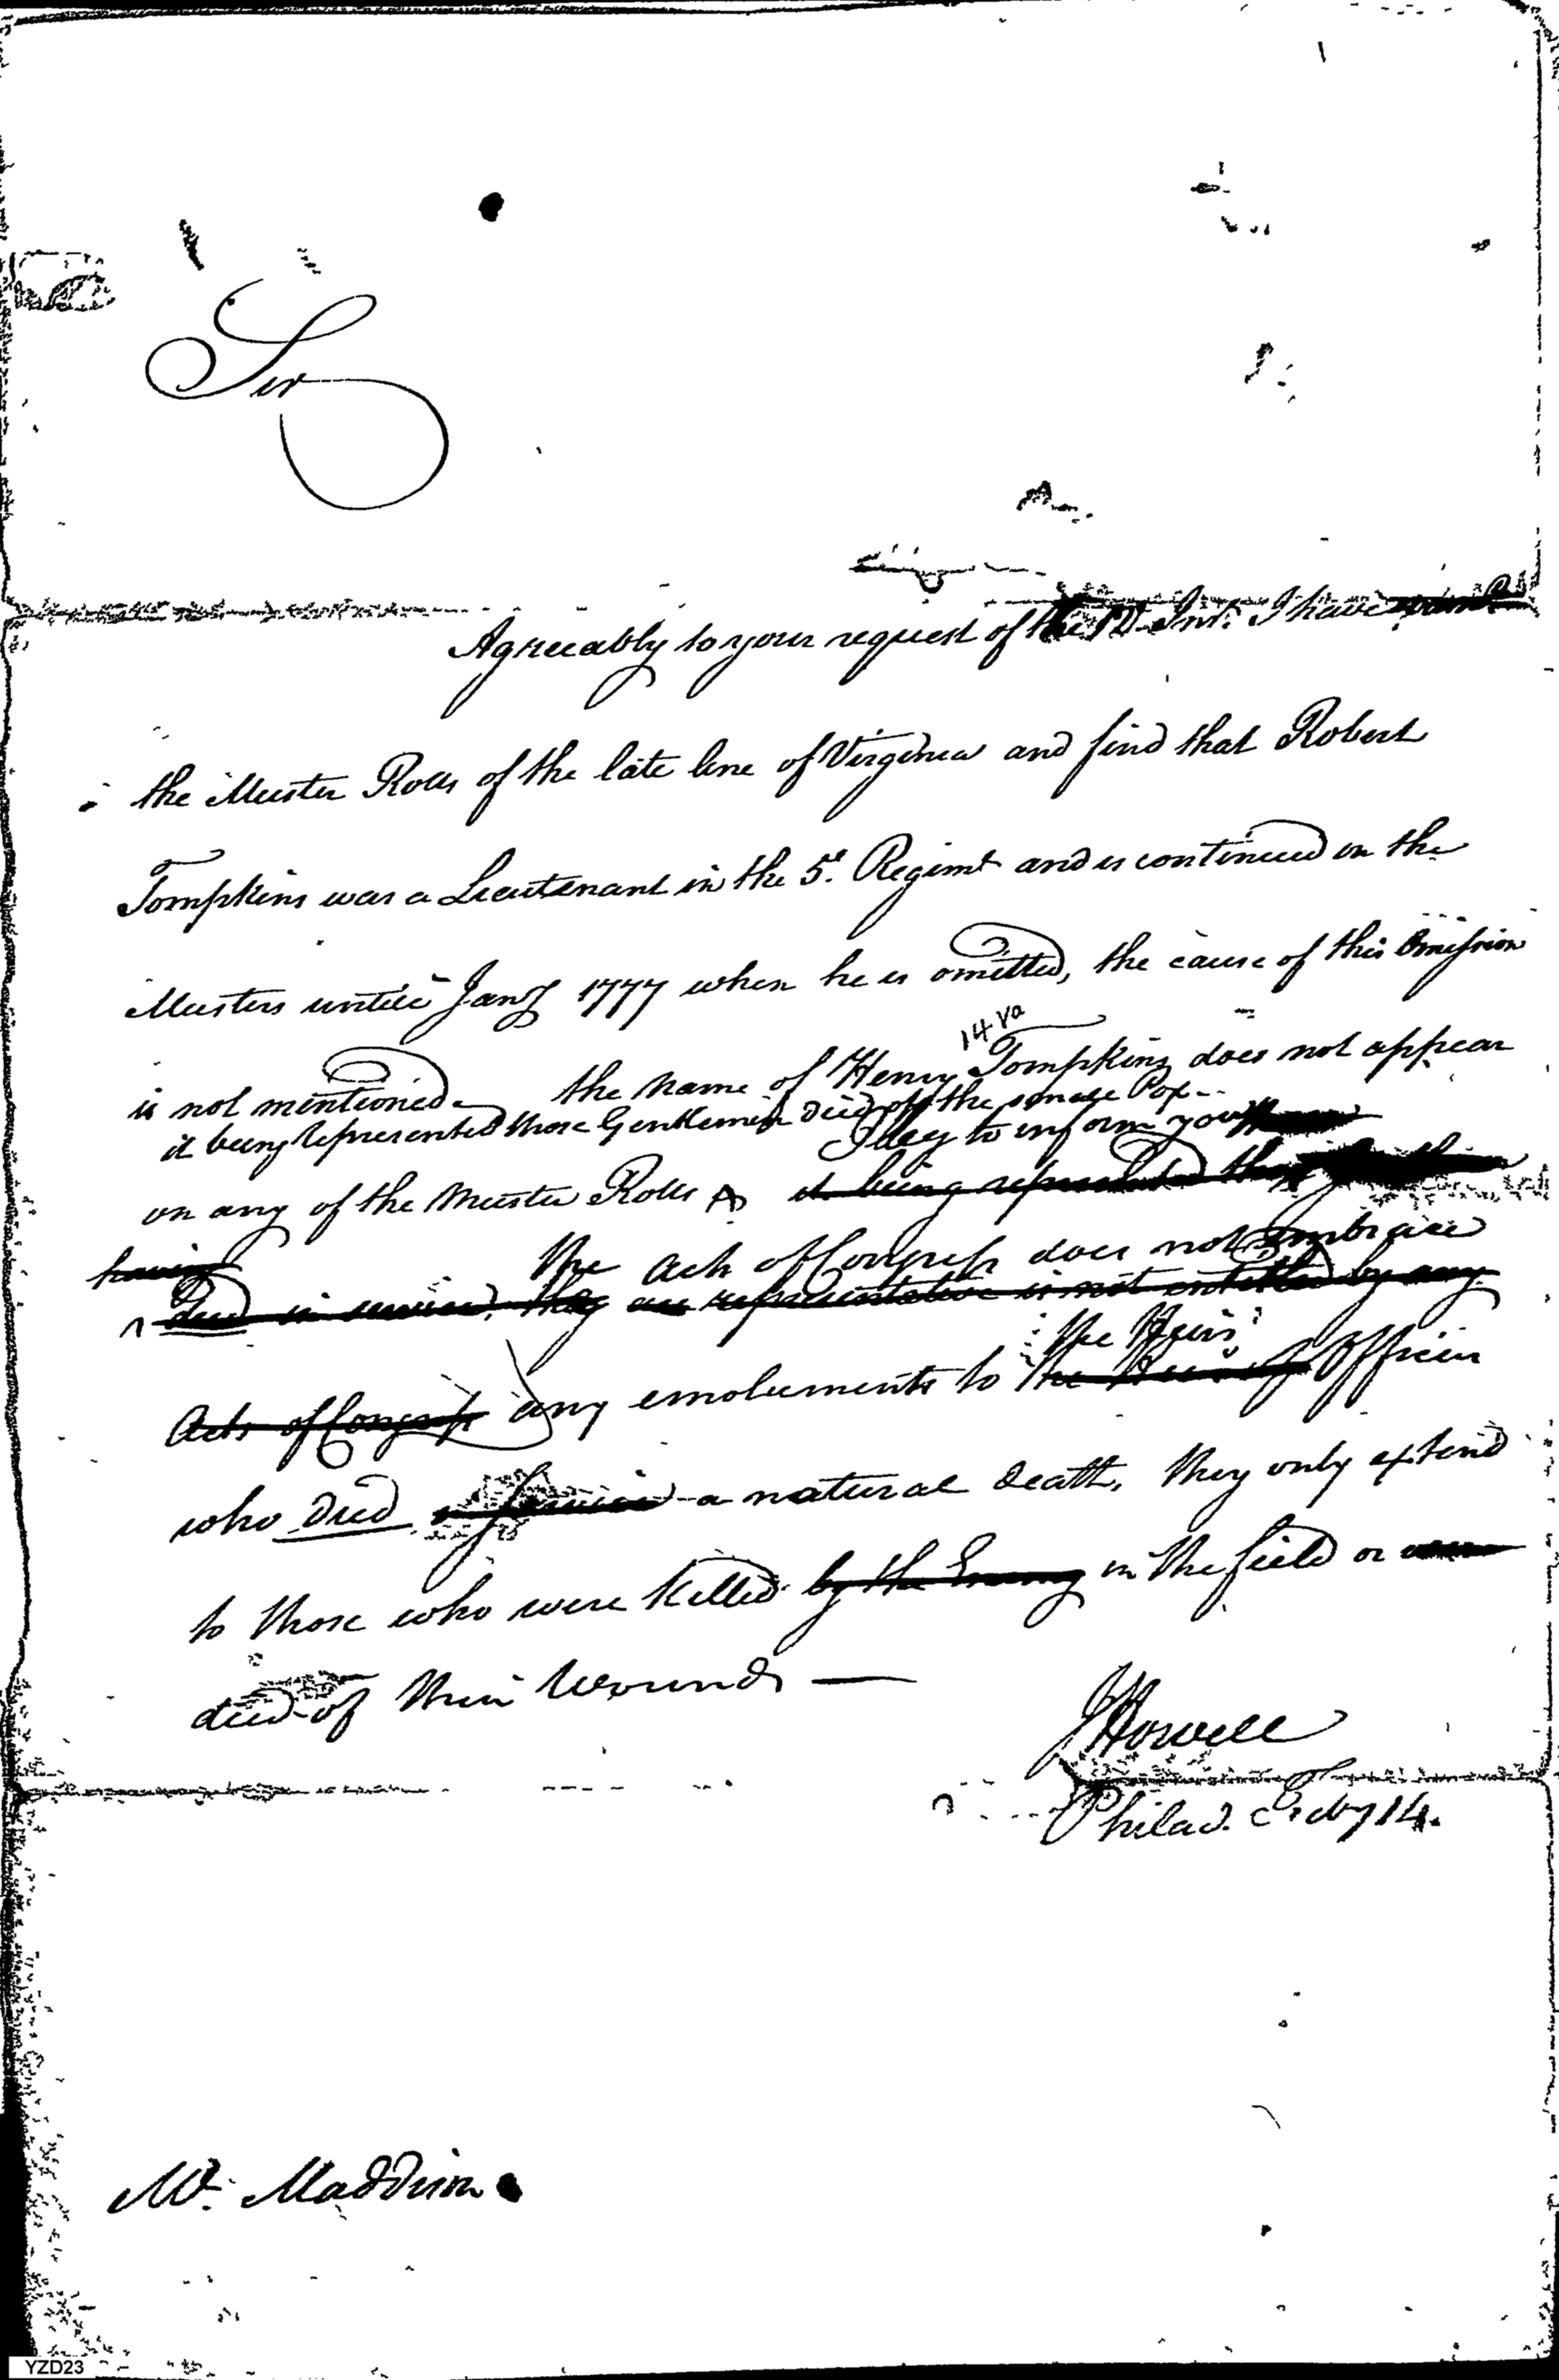 Sir
Agreeably to your request of the 12 Inst. I have
the Muster Rolls of the late line of Virginia and find that Robert
Tompkins was a Lieutenant in the 5th. Regimt and is continued on the
Musters untill Jany 1777 when he is omitted, the cause of this Omission
14 Va
is not mentioned. the Name of Henry Tompkins does not appear
it being represented those Gentlemen died of the small Pox--
I beg to inform you
on any of the Muster Rolls it being represented they
having the Acts of Congress does not embrace
died in service, they are representative is not entitled by any
the Heirs
Acts of Congress any emoluments to the Heirs of Officers
who died in service a natural death, they only extend
to those who were killed by the Enemy in the field or
died of their Wounds —
JHowell
Philad. Feby 14.
Mr. Maddison
YZD23